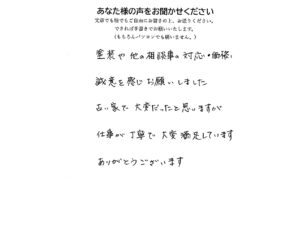 あなた様の声をお聞かせください
文章でも絵でもご自由にお書きの上、お送りください。
できれば手書きでお願いいたします。
(もちろんパソコンでも構いません。)
塗装や他の相談事の対応・価格に
誠意を感じお願いしました
古い家で大変だったと思いますが
仕事が丁寧で大変満足しています
ありがとうございます